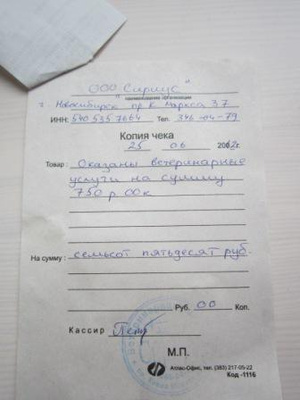 ООО "Сириус"
наименование организации
г. Новосибирск пр. К. Маркса 37
ИНН: 5405357664 Тел. 346-04-79
Копия чека
25 06 2012г.
Товар: Оказаны ветеринарные
услуги на сумму
750 р 00к
На сумму: семьсот пятьдесят руб
Руб. 00 Коп.
Кассир
М.П.
Атлас-Офис, тел. (383) 217-05-22
Код -1116